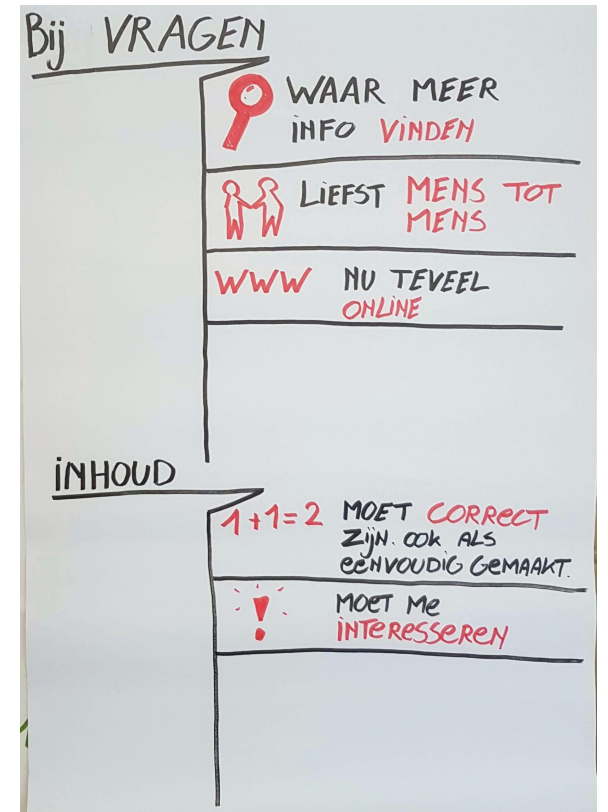 Bij VRAGEN
WAAR MEER
INFO VINDEN
LIEFST MENS TOT
MENS
WWW NU TEVEEL
ONLINE
INHOUD
1+1=2 MOET CORRECT
ZIJN. OOK ALS
EENVOUDIG GEMAAKT.
MOET ME
INTERESSEREN